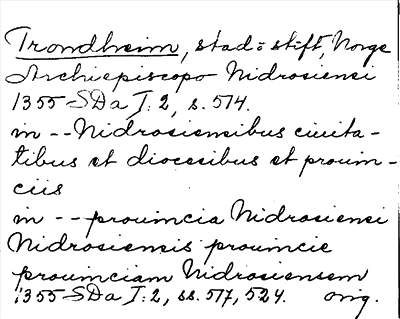 Trondheim, stad o. stift, Norge
Archiepiscopo Nidrosiensi
1355 SDa I: 2, s. 574.
in -- Nidrosiensibus ciuita-
tibus et diocesibus et prouin-
ciis
in -- prouincia Nidrosiensi
Nidrosiensis prouincie
prouinciam Nidrosiensem
1355 SDa I: 2, ss. 517, 524. orig.